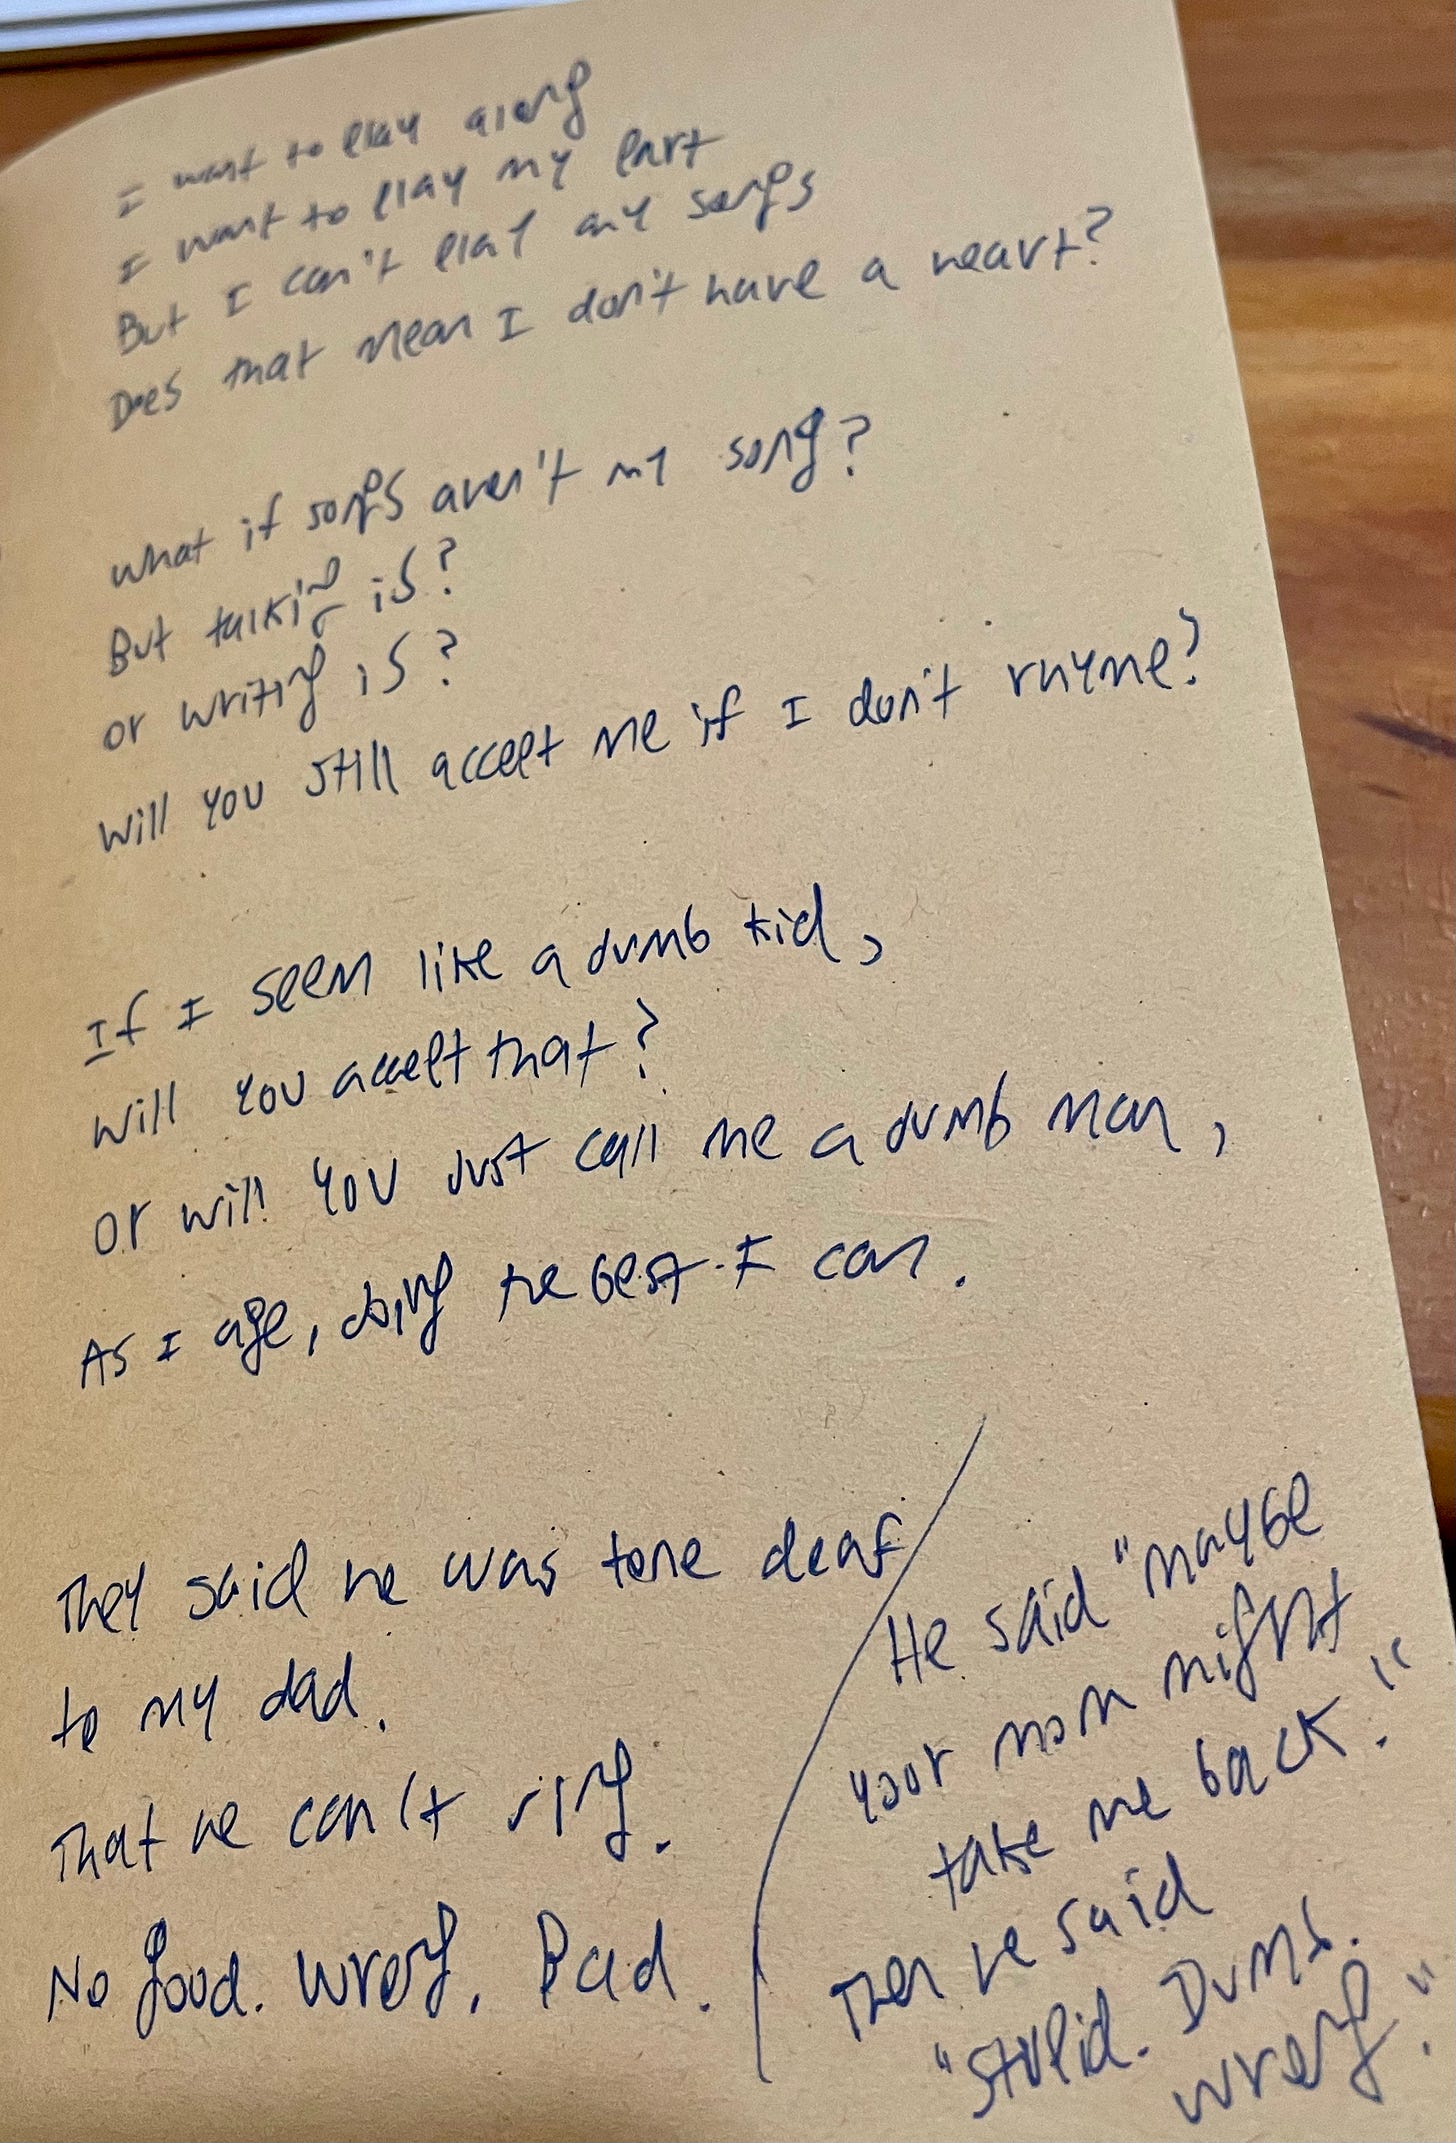 I want to play along
I want to play my part
But I can't play any songs
Does that mean I don't have a heart?
What if songs aren't my song?
But talking is?
or writing is?
Will you still accept me if I don't rhyme?
If I seem like a dumb kid,
Will you accept that?
Or will you just call me a dumb man,
As I age, doing the best I can.
They said he was tone deaf
to my dad.
That he can't sing.
No good. Wrong. Bad.
He said "maybe
your mom might
take me back."
Then he said
"Stupid. Dumb.
Wrong."